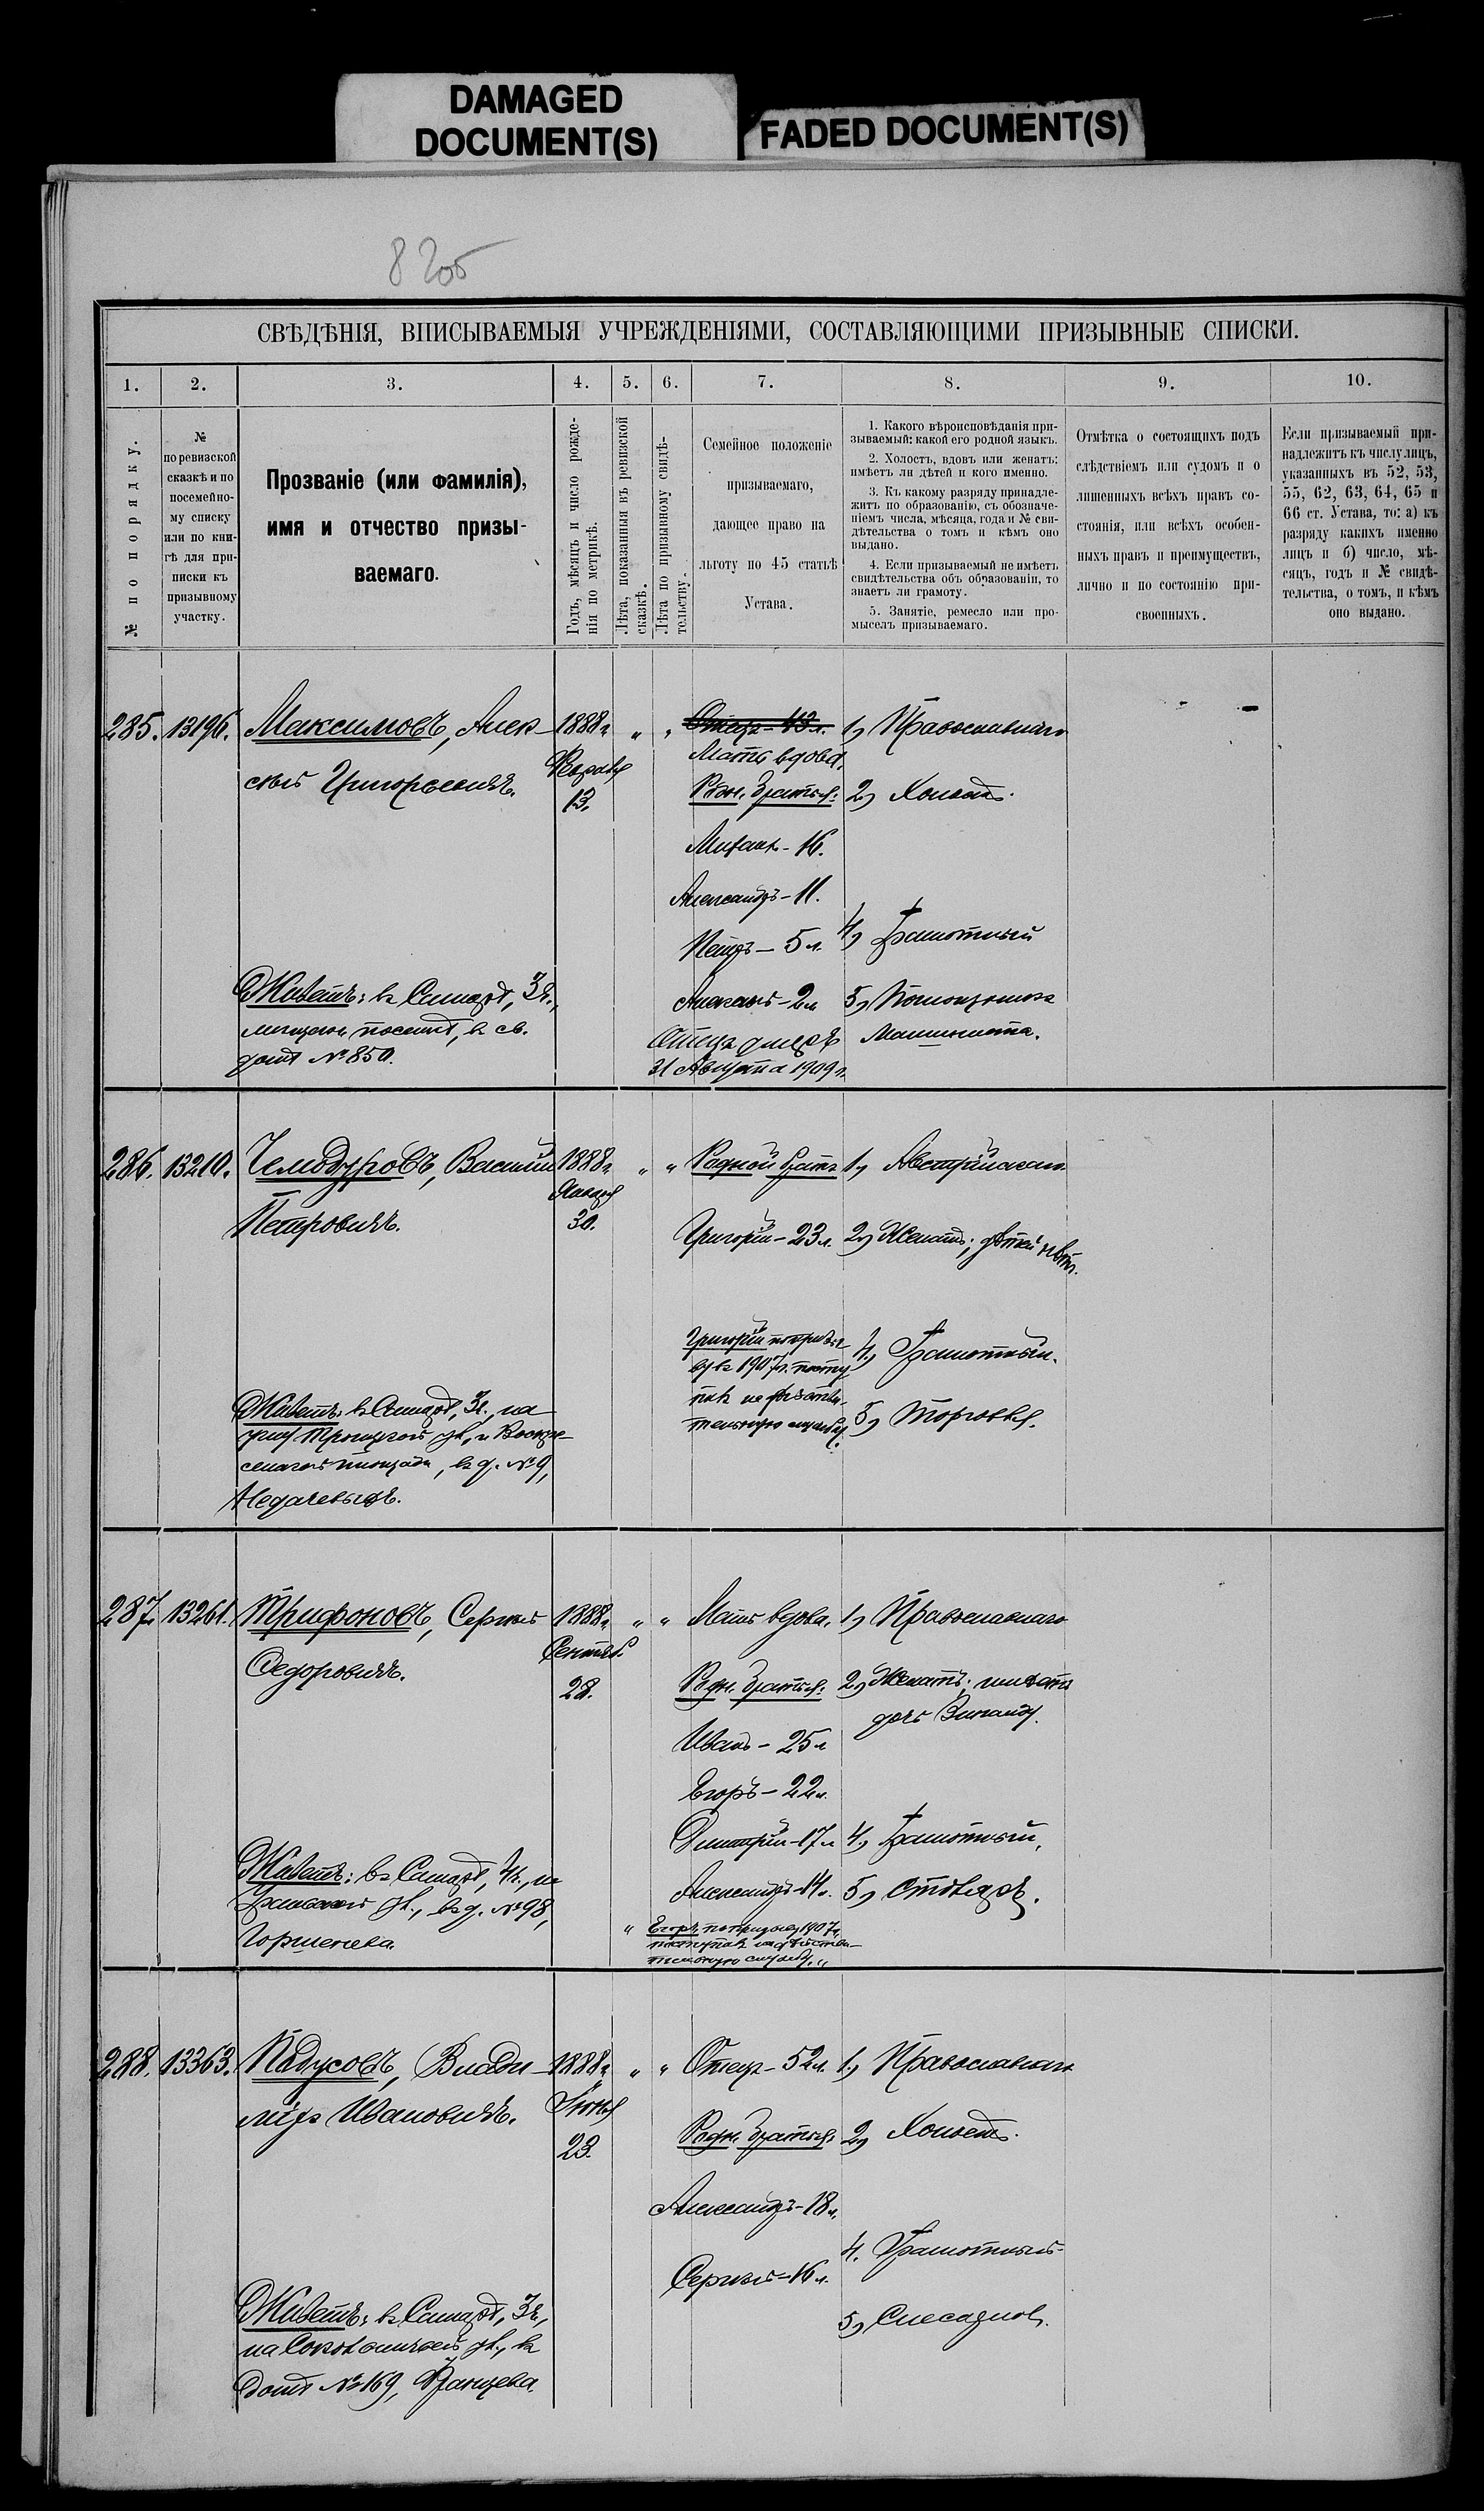 DAMAGED
DOCUMENT(S)
FADED DOCUMENT(S)
8
СВѢДѢНІЯ, ВПИСЫВАЕМЫЯ УЧРЕЖДЕНІЯМИ, СОСТАВЛЯЮЩИМИ ПРИЗЫВНЫЕ СПИСКИ.
1. 2. 3. 4. 5. 6. 7. 8. 9. 10.
№ по порядку.
№
по ревизской
сказкѣ и по
посемейно-
му списку
или по кни-
гѣ для при-
писки къ
призывному
участку.
Прозваніе (или фамилія),
имя и отчество призы-
ваемаго.
Годъ, мѣсяцъ и число рожде-
нія по метрикѣ.
Лѣта, показанныя въ ревизской
сказкѣ.
Лѣта по призывному свидѣ-
тельству.
Семейное положеніе
призываемаго,
дающее право на
льготу по 45 статьѣ
Устава.
1. Какого вѣроисповѣданія при-
зываемый: какой его родной языкъ.
2. Холостъ, вдовъ или женатъ:
имѣетъ ли дѣтей и кого именно.
3. Къ какому разряду принадле-
житъ по образованію, съ обозначе-
ніемъ числа, мѣсяца, года и № сви-
дѣтельства о томъ и кѣмъ оно
выдано.
4. Если призываемый не имѣетъ
свидѣтельства объ образованіи, то
знаетъ ли грамоту.
5. Занятіе, ремесло или про-
мыселъ призываемаго.
Отмѣтка о состоящихъ подъ
слѣдствіемъ или судомъ и о
лишенныхъ всѣхъ правъ со-
стоянія, или всѣхъ особен-
ныхъ правъ и преимуществъ,
лично и по состоянію при-
своенныхъ.
Если призываемый при-
надлежитъ къ числу лицъ,
указанныхъ въ 52, 53,
55, 62, 63, 64, 65 и
66 ст. Устава, то: а) къ
разряду какихъ именно
лицъ и б) число, мѣ-
сяцъ, годъ и № свидѣ-
тельства, о томъ, и кѣмъ
оно выдано.
285. 13196. Максимовъ, Алек-
сѣй Григорьевичъ.
1888 г.
Февраля
13.
" "
Отецъ - 43 л.
Мать вдова.
Родн. братья:
Михаилъ - 16.
Александръ - 11.
Петръ - 5 л.
Алексѣй - 2 л.
Отецъ умеръ
31 Августа 1909 г.
1, Православнаго
2, Холостъ.
4, Грамотный
5, Помощникъ
Машиниста.
Живетъ: въ Самарѣ, 3 ч.,
въ св.
домѣ № 850.
286. 13210. Чемодуровъ, Василій
Петровичъ.
1888 г.
Января
30.
" "
Родной братъ
Григорій - 23 л.
Григорій по призы-
ву въ 1907 г. посту
пилъ на дѣйстви-
тельную службу.
1, Австрійскаго
2, Женатъ; дѣтей нѣтъ.
4, Грамотный.
5, Торговля.
Живетъ: въ Самарѣ, 3 ч., на
углу Троицкой ул., и Воскре-
сенской площади, въ д. № 9,
287. 13261. Трифоновъ, Сергѣй
Федоровичъ.
1888 г.
Сентяб.
28.
" "
Мать вдова.
Родн. братья:
Иванъ - 25 л.
Егоръ - 22 л.
Димитрій - 17 л.
Александръ - 14 л.
" Егоръ по призыву 1907 г.
поступилъ на дѣйстви-
тельную службу. "
1, Православнаго
2, Женатъ, имѣетъ
дочь Зинаиду.
4, Грамотный,
5, Столяръ.
Живетъ: въ Самарѣ, 4 ч., на
Уральской ул., въ д. № 98,
Горшенева.
288. 13363. Кадусовъ, Влади-
міръ Ивановичъ.
1888 г.
Іюня
23.
" "
Отецъ - 52 л.
Родн. братья:
Александръ - 18 л.
Сергѣй - 16 л.
1, Православнаго
2, Холостъ.
4. Грамотный
5, Слесарное.
Живетъ: въ Самарѣ, 3 ч.,
на Соловьиной ул., въ
домѣ № 169,